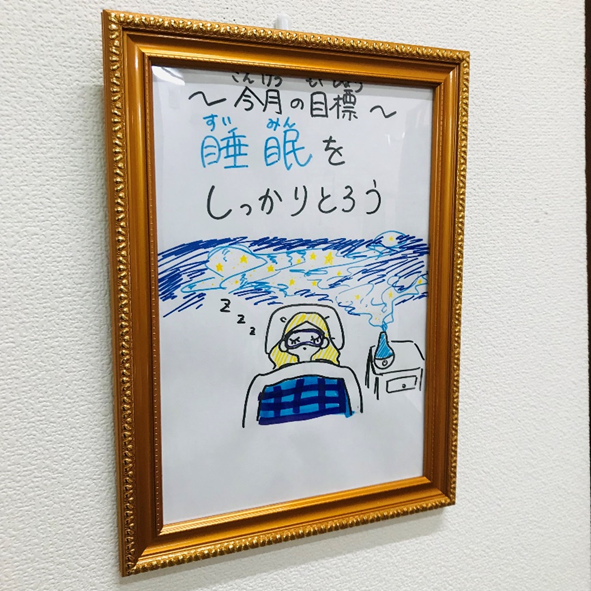 こんげつ もくひょう
～今月の目標～
すい みん
睡眠を
しっかりとろう
z z z